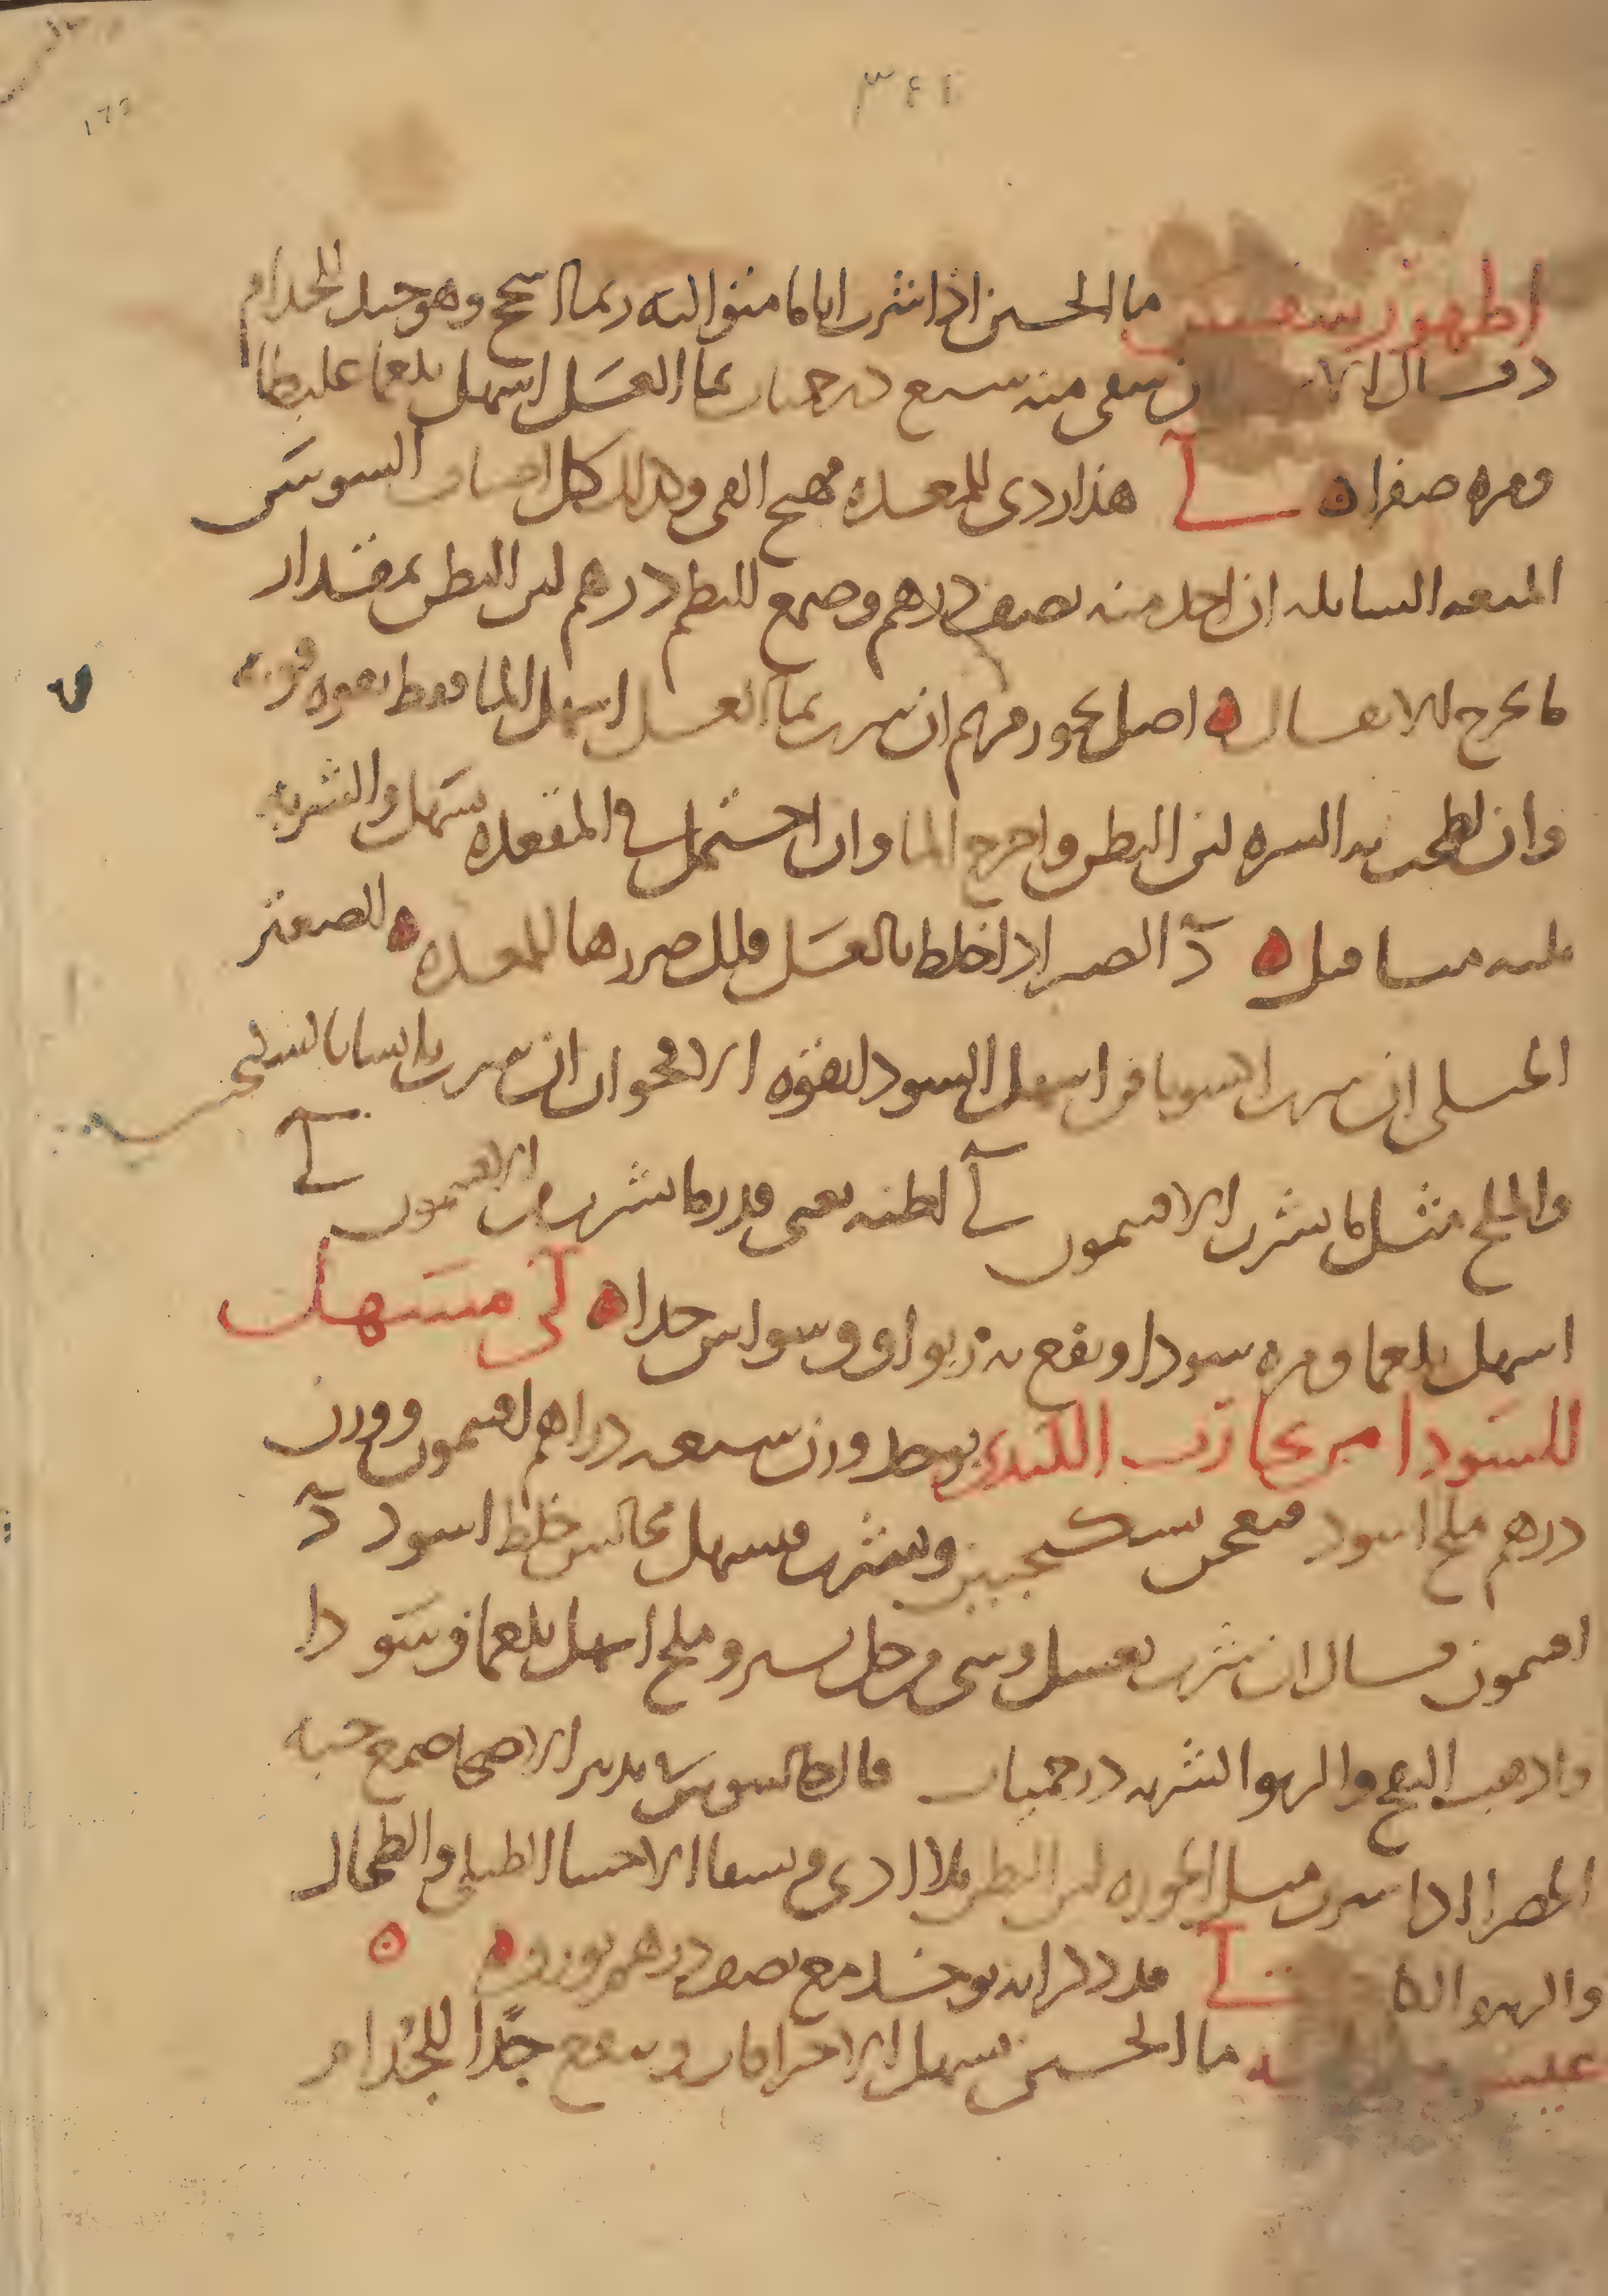 ٣٤١
اطهورسفس ما الجبن اذا شرب اياما متواليه ربما اسحج وهو جيد للجذام
د قال ان سقي منه سبع درخميات بما العسل اسهل بلغما غليظا
ومره صفرا ه لي هذا ردي للمعده مهيج القي وكذلك كل اصناف السوس
الميعه السايله ان اخذ منه نصف درهم وصمغ البطم درهم لين البطن بمقدار
ما يخرج الاثفال ه اصل بخور مريم ان شرب بما العسل اسهل الما فقط بقوه قويه
وان لطخت به السره لين البطن واخرج الما وان احتمل في المقعده يسهل والشربه
منه مثاقيل ه د الصبر اذا خلط بالعسل قلل ضررها للمعده ه الصعتر
الجبلي ان شرب اكسوبافن اسهل السودا بقوه الاقحوان ان شرب يابسا بالسكنجبين
والملح مثل ما يشرب الافتيمون لي اظنه يعني قدر ما يشرب من الافتيمون لي
اسهل بلغما ومره سودا ونفع من ربو او وسواس جدا ه لي مسهل
للسودا من تجارب الكندي يوخذ وزن سبعه دراهم افتيمون ووزن
درهم ملح اسود فيعجن بسكنجبين ويشرب فيسهل مجالس خلط اسود د
افتيمون قال ان شرب بعسل وشي من خل يسير وملح اسهل بلغما وسودا
واذهب النفخ والربو الشربه درخميات قال جالينوس في تدبير الاصحا صمغ حبه
الخضرا اذا شرب مثل الجوزه لين البطن بلا اذى وينقي الاحشا الطبلي والطحال
والربو والكلى لي قد ذكر انه يوخذ مع نصف درهم بورق ه ه
عيسى ما الجبن يسهل الاحتراقات وينفع جدا للجذام